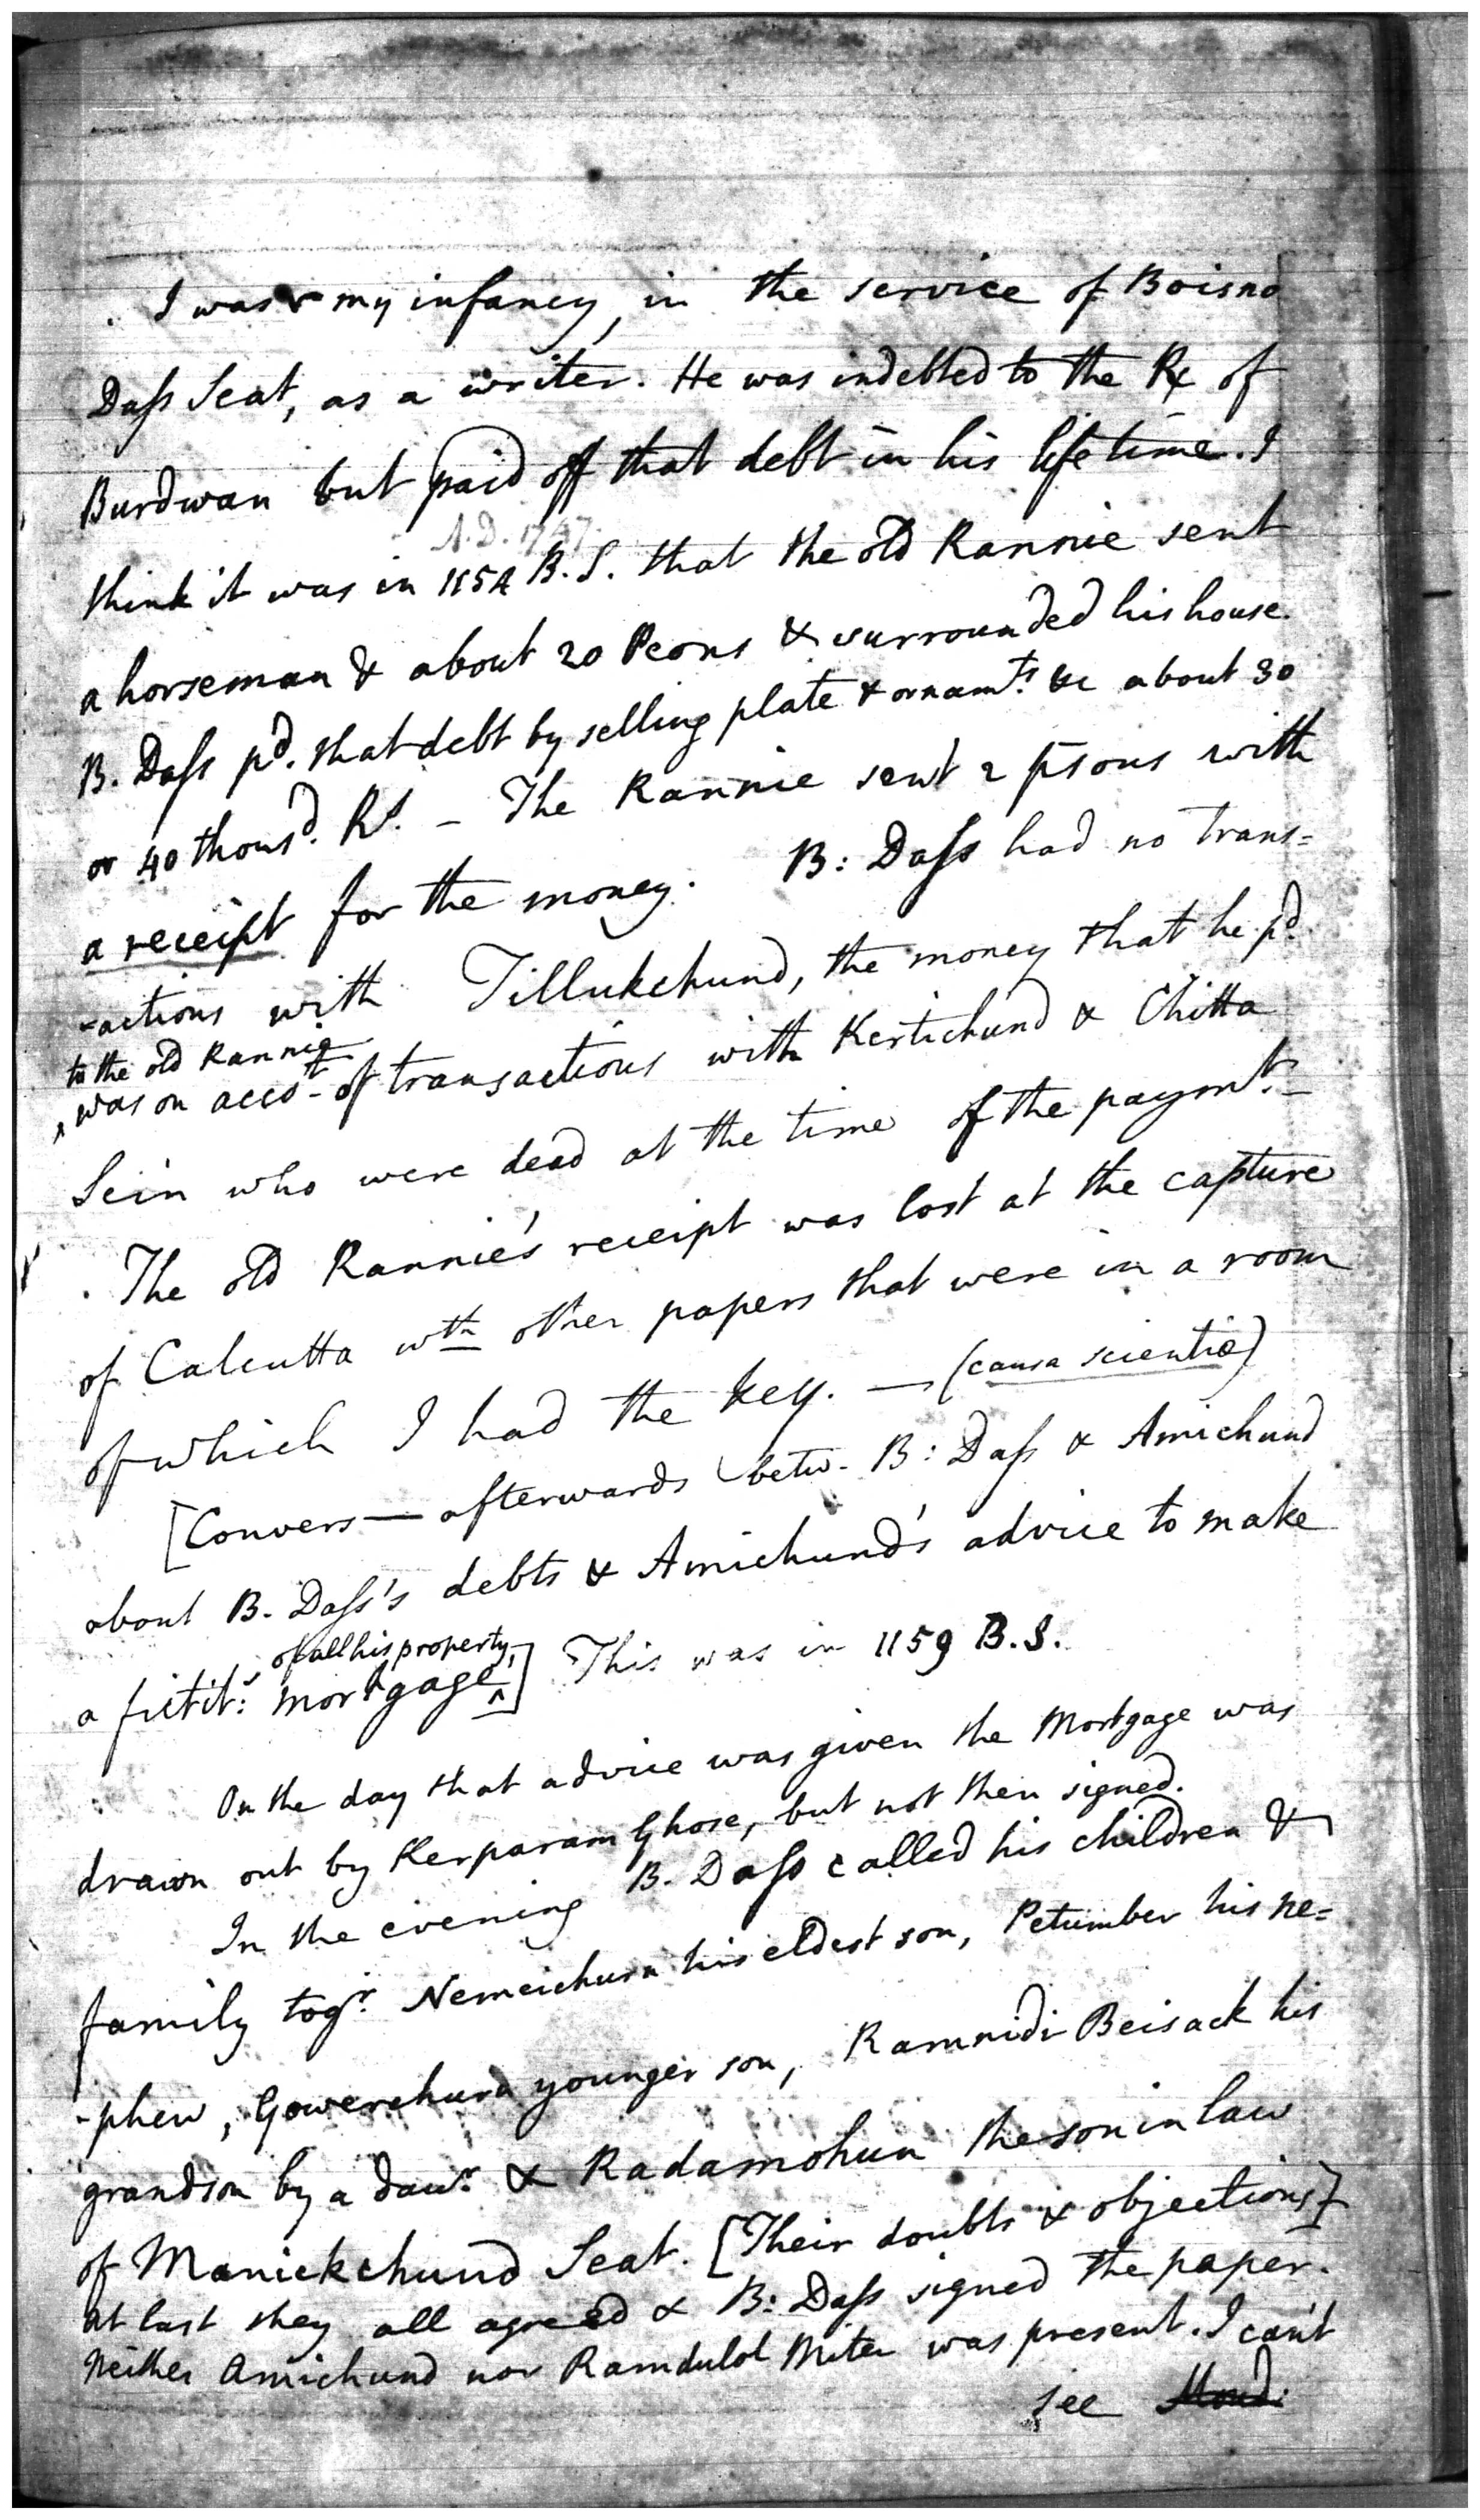 I was my infancy, in the service of Boisno
Dass Seat, as a writer. He was indebted to the Rx of
Burdwan but paid off that debt in his life time. I
A.D. 1747.
think it was in 1154 B.S. that the old Rannie sent
a horseman & about 20 Peons & surrounded his house.
B. Dass pd. that debt by selling plate & ornamts. &c about 30
or 40 thousd. Rs. – The Rannie sent 2 psons with
a receipt for the money. B: Dass had no trans=
-actions with Tillukchund, the money that he pd.
to the old Rannie
^was on accot. of transactions with Kertichund & Chitta
Sein who were dead at the time of the paymt. –
The old Rannie's receipt was lost at the capture
of Calcutta wth other papers that were in a room
of which I had the key. — (causa scientiæ)
[Convers— afterwards betw. B: Dass & Amichund
about B. Dass's debts & Amichund's advice to make
of all his property,
a fictits: mortgage^] This was in 1159 B.S.
On the day that advice was given the Mortgage was
drawn out by Kerparam Ghose, but not then signed.
In the evening B. Dass called his children &
family togr. Nemeichurn his eldest son, Petumber his ne=
-phew, Gowerchurn younger son, Ramnidi Beisack his
grandson by a daur. & Radamohun the son in law
of Manickchund Seat. [Their doubts & objections]
At last they all agreed & B: Dass signed the paper.
Neither Amichund nor Ramdulol Miter was present. I can't
see